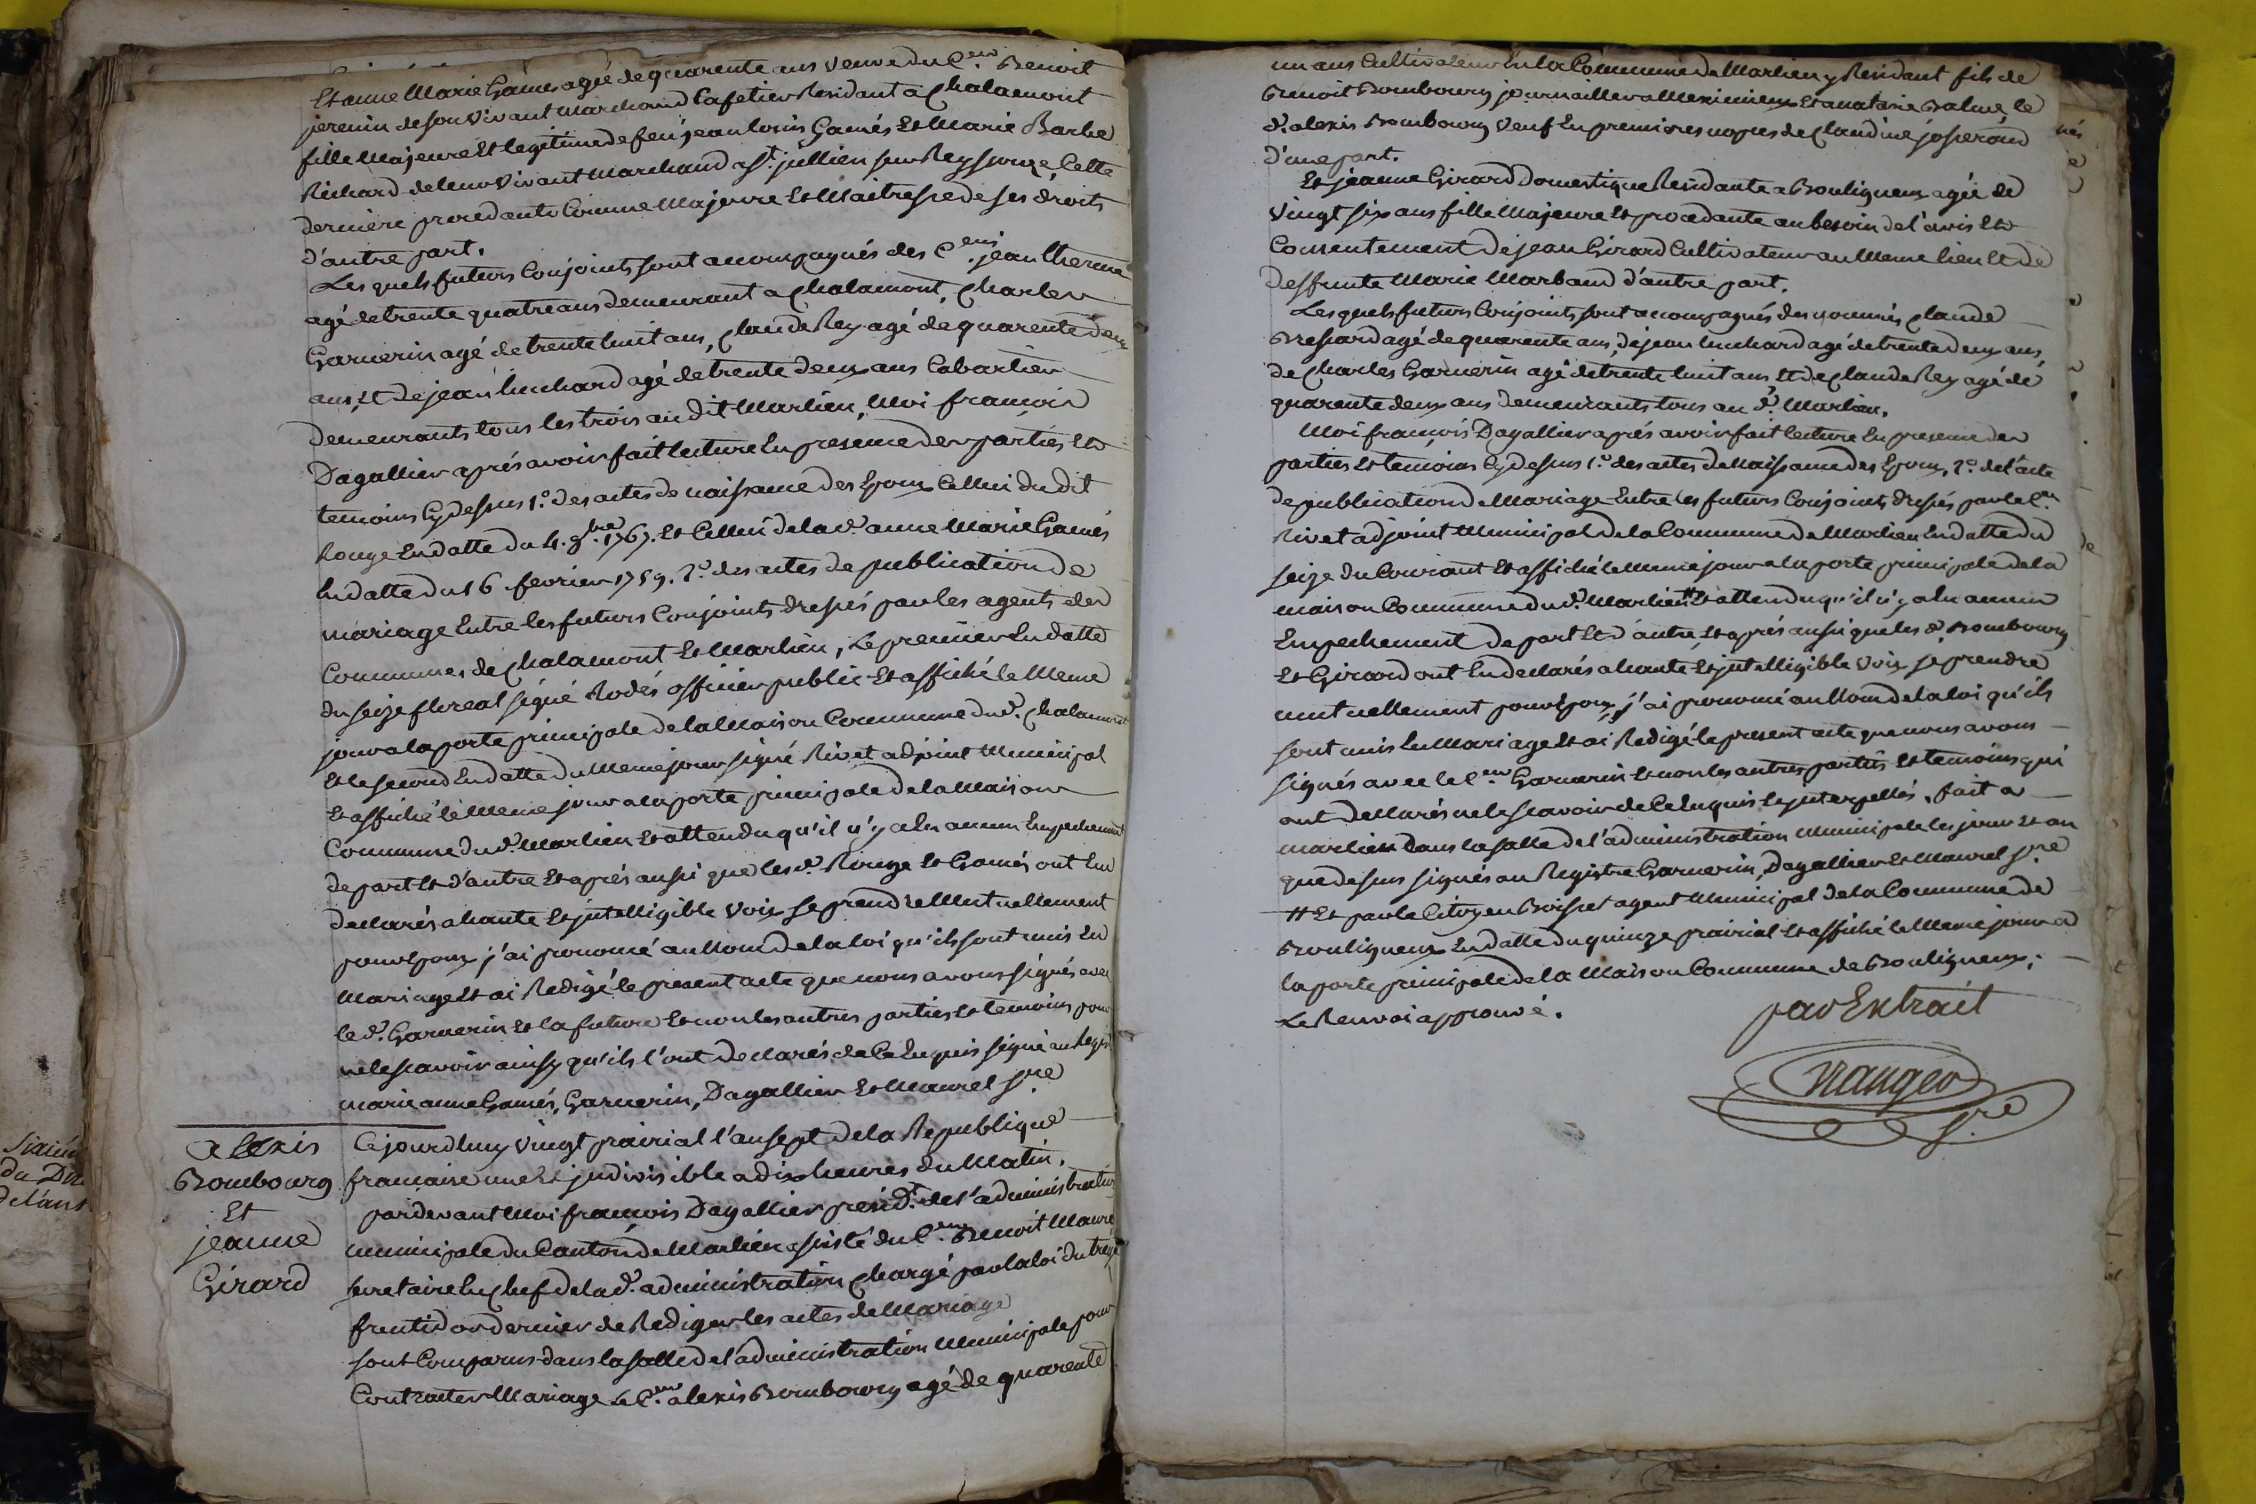 Et anne Marie Gamés agée de quarente ans veuve du C.en Benoit
jeremin de son vivant marchand Cafetier Residant a Chalamont
fille Majeure Et legitime de feu jean louis Gamés Et Marie Barbe
Richard de leur vivant marchand a St. jullien sur Reyssouze, Cette
derniere procedante Comme Majeure Et Maitresse de ses droits
d'autre part.
Les quels futurs Conjoints sont accompagnés des C.ens jean
agé de trente quatre ans demeurant a Chalamont, Charles
Garnerin agé de trente huit ans, Claude Rey agé de quarente deux
ans, Et de jean huchard agé de trente deux ans Cabartier
Demeurants tous les trois au dit Marlieu, Moi françois
Dagallier aprés avoir fait lecture En presence des parties Et
temoins Cy dessus 1.º des actes de naissance des Epoux Celui du dit
Rouge En datte du 4. 9.bre 1767. Et Celui de la d. anne Marie Gamés
En datte du 16 fevrier 1759. 2.º des actes de publication de
mariage Entre les futurs Conjoints dressés par les agents des
Communes de Chalamont Et Marlieu, Le premier En datte
du seize floreal signé Rodés officier public Et affiché le Meme
jour a la porte principale de la Maison Commune du d. Chalamont
Et le second En datte du Meme jour signé Rivet adjoint Municipal
Et affiché le Meme jour a la porte principale de la Maison
Commune du d. Marlieu Et attendu qu'il n'y a Eu aucun Empechement
de part Et d'autre Et aprés aussi que les d. Rouge Et Gamés ont En
declarés a haute Et jntelligible voix se prendre Mutuellement
pour Epoux j'ai prononcé au Nom de la loi qu'ils sont unis En
Mariage Et ai Redigé le present acte que nous avons signés avec
le d. Garnerin Et la future Et non les autres parties Et temoins pour
ne le scavoir ainsy qu'ils l'ont declarés de Ce Enquis signé au Regist
marie anne Gamés, Garnerin, Dagallier Et Maurel s.re
alexis
Bombourg
Et
jeanne
Girard
Ce jourdhuy vingt prairial l'an sept de la Republique
francaise une Et jndivisible a dix heures du Matin.
pardevant Moi françois Dagallier presid.t de l'administration
municipale du Canton de Marlieu assisté du C.en Benoit Maurel
secretaire En Chef de la d. administration Chargé par la loi du treize
fructidor dernier de Rediger les actes de Mariage
sont Comparus dans la salle de l'administration Municipale pour
Contracter Mariage Le C.en alexis Bombourg agé de quarente
un ans Cultivateur En la Commune de Marlieu y Residant fils de
Benoit Bombourg journaillier a Meximieux Et anatasie Balme, le
d. alexis Bombourg veuf En premieres nopces de Claudine josserand
d'une part.
Et jeanne Girard Domestique Residante a Bouligneux agée de
vingt six ans fille Majeure Et procedante au besoin de l'avis Et
Consentement de jean Girard Cultivateur au Meme lieu Et de
Deffunte Marie Marband d'autre part.
Les quels futurs Conjoints sont accompagnés des nommés Claude
Bressard agé de quarente ans, de jean huchard agé de trente deux ans,
de Charles Garnerin agé de trente huit ans Et de Claude Rey agé de
quarente deux ans Demeurants tous au d. Marlieu.
Moi françois Dagallier aprés avoir fait lecture En presence des
parties Et temoins Cy Dessus 1.º des actes de Naissance des Epoux, 2.º de l'acte
de publication de Mariage Entre les futurs Conjoints dressés par le C.en
Rivet adjoint Municipal de la Commune de Marlieu En datte du
seize du Courant Et affiché le meme jour a la porte principale de la
maison Commune du d. Marlieu # Et attendu qu'il n'y a Eu aucun
Empechement de part Et d'autre, Et aprés aussi que les d. Bombourg
Et Girard ont En declarés a haute Et jntelligible voix se prendre
mutuellement pour Epoux, j'ai prononcé au Nom de la loi qu'ils
sont unis En Mariage Et ai Redigé le present acte que nous avons
signés avec le C.en Garnerin Et non les autres parties Et temoins qui
ont declarés ne le scavoir de Ce Enquis Et jnterpellés. fait a
marlieu Dans la salle de l'administration Municipale les jour Et an
que dessus signés au Registre Garnerin, Dagallier Et Maurel s.re
# Et par le Citoyen Boisset agent Municipal de la Commune de
Bouligneux En datte du quinze prairial Et affiché le Meme jour a
la porte principale de la Maison Commune de Bouligneux.
Le Renvoi approuvé.
par Extrait
s.re